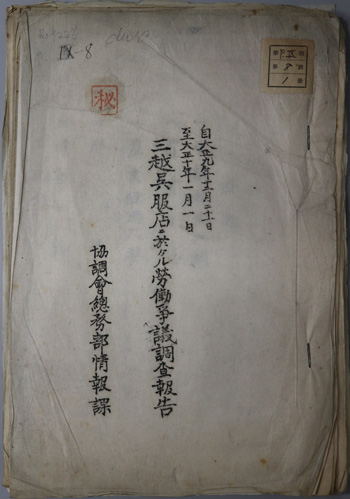 IX-8
秘
自大正九年十二月二十日
至大正十年一月一日
三越呉服店ニ於ケル労働争議調査報告
協調會總務部情報課